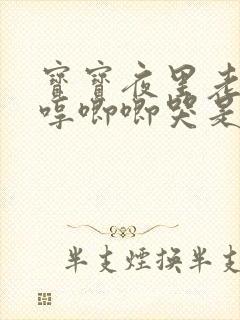 寶寶夜里老
哼唧唧哭是
半支煙換半支